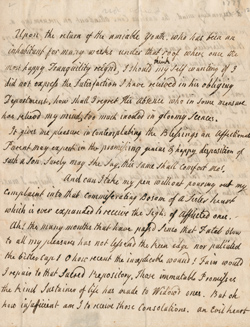 Upon the return of the amiable Youth, who has been an
inhabitant for many weeks under that roof where once the
most happy Tranquility reign'd, I should think my self wanting if I
did not express the Satisfaction I have received in his obliging
Deportment, how shall I regret His absence who in some measure
has relieved my mind, too much inured in gloomy Scenes.
To give me pleasure in contemplating the Blessings an Affectionate
Parent may expect in the promising genius & happy disposition of
such a Son, surely may she say, this same shall comfort me.
And can I take my pen without pouring out my
Complaint into that Commiserating Bosom of a Sister honor'd
which is ever expanded to receive the Sighs of afflicted ones.
Ah! the many months that have pass'd since that Fatal blow
to all my pleasures has not lessened the keen edge nor palliated
the bitter Cup! O how recent the inexplicable wound! I fain would
repair to that Sacred Repository, those immutable Promises
the kind Sustainer of life has made to Widow'd ones. But oh
how insufficient am I to receive those Consolations. an Evil heart